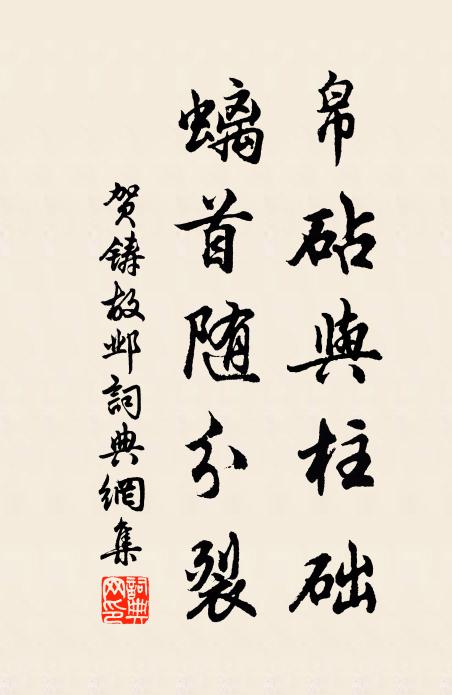 帛砧與柱础
螭首随分裂
贺铸故邺詞典網集
詞典網印